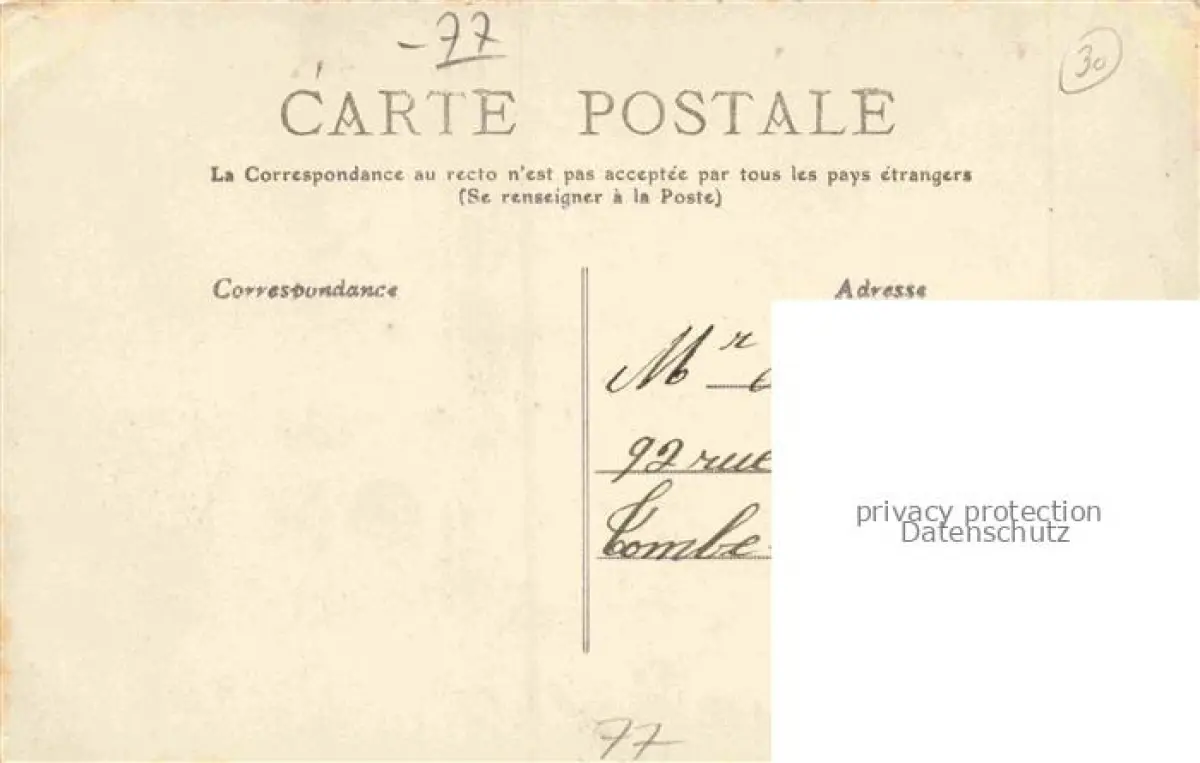 - 77
30
CARTE POSTALE
La Correspondance au recto n'est pas acceptée par tous les pays étrangers
(Se renseigner à la Poste)
Correspondance
Adresse
Mr
92 rue
Tombe
privacy protection
Datenschutz
77